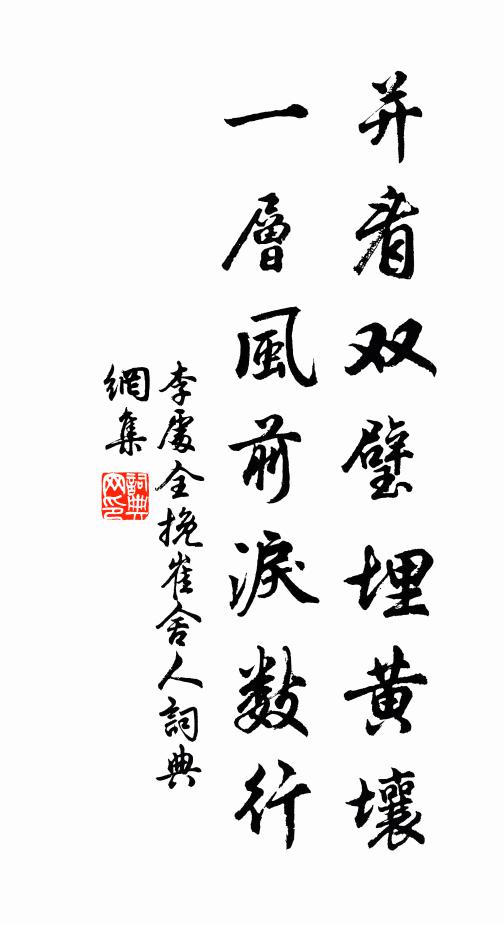 并看双璧埋黄壤
一層風前淚數行
李處全挽崔舍人詞典
網集
詞典
网印